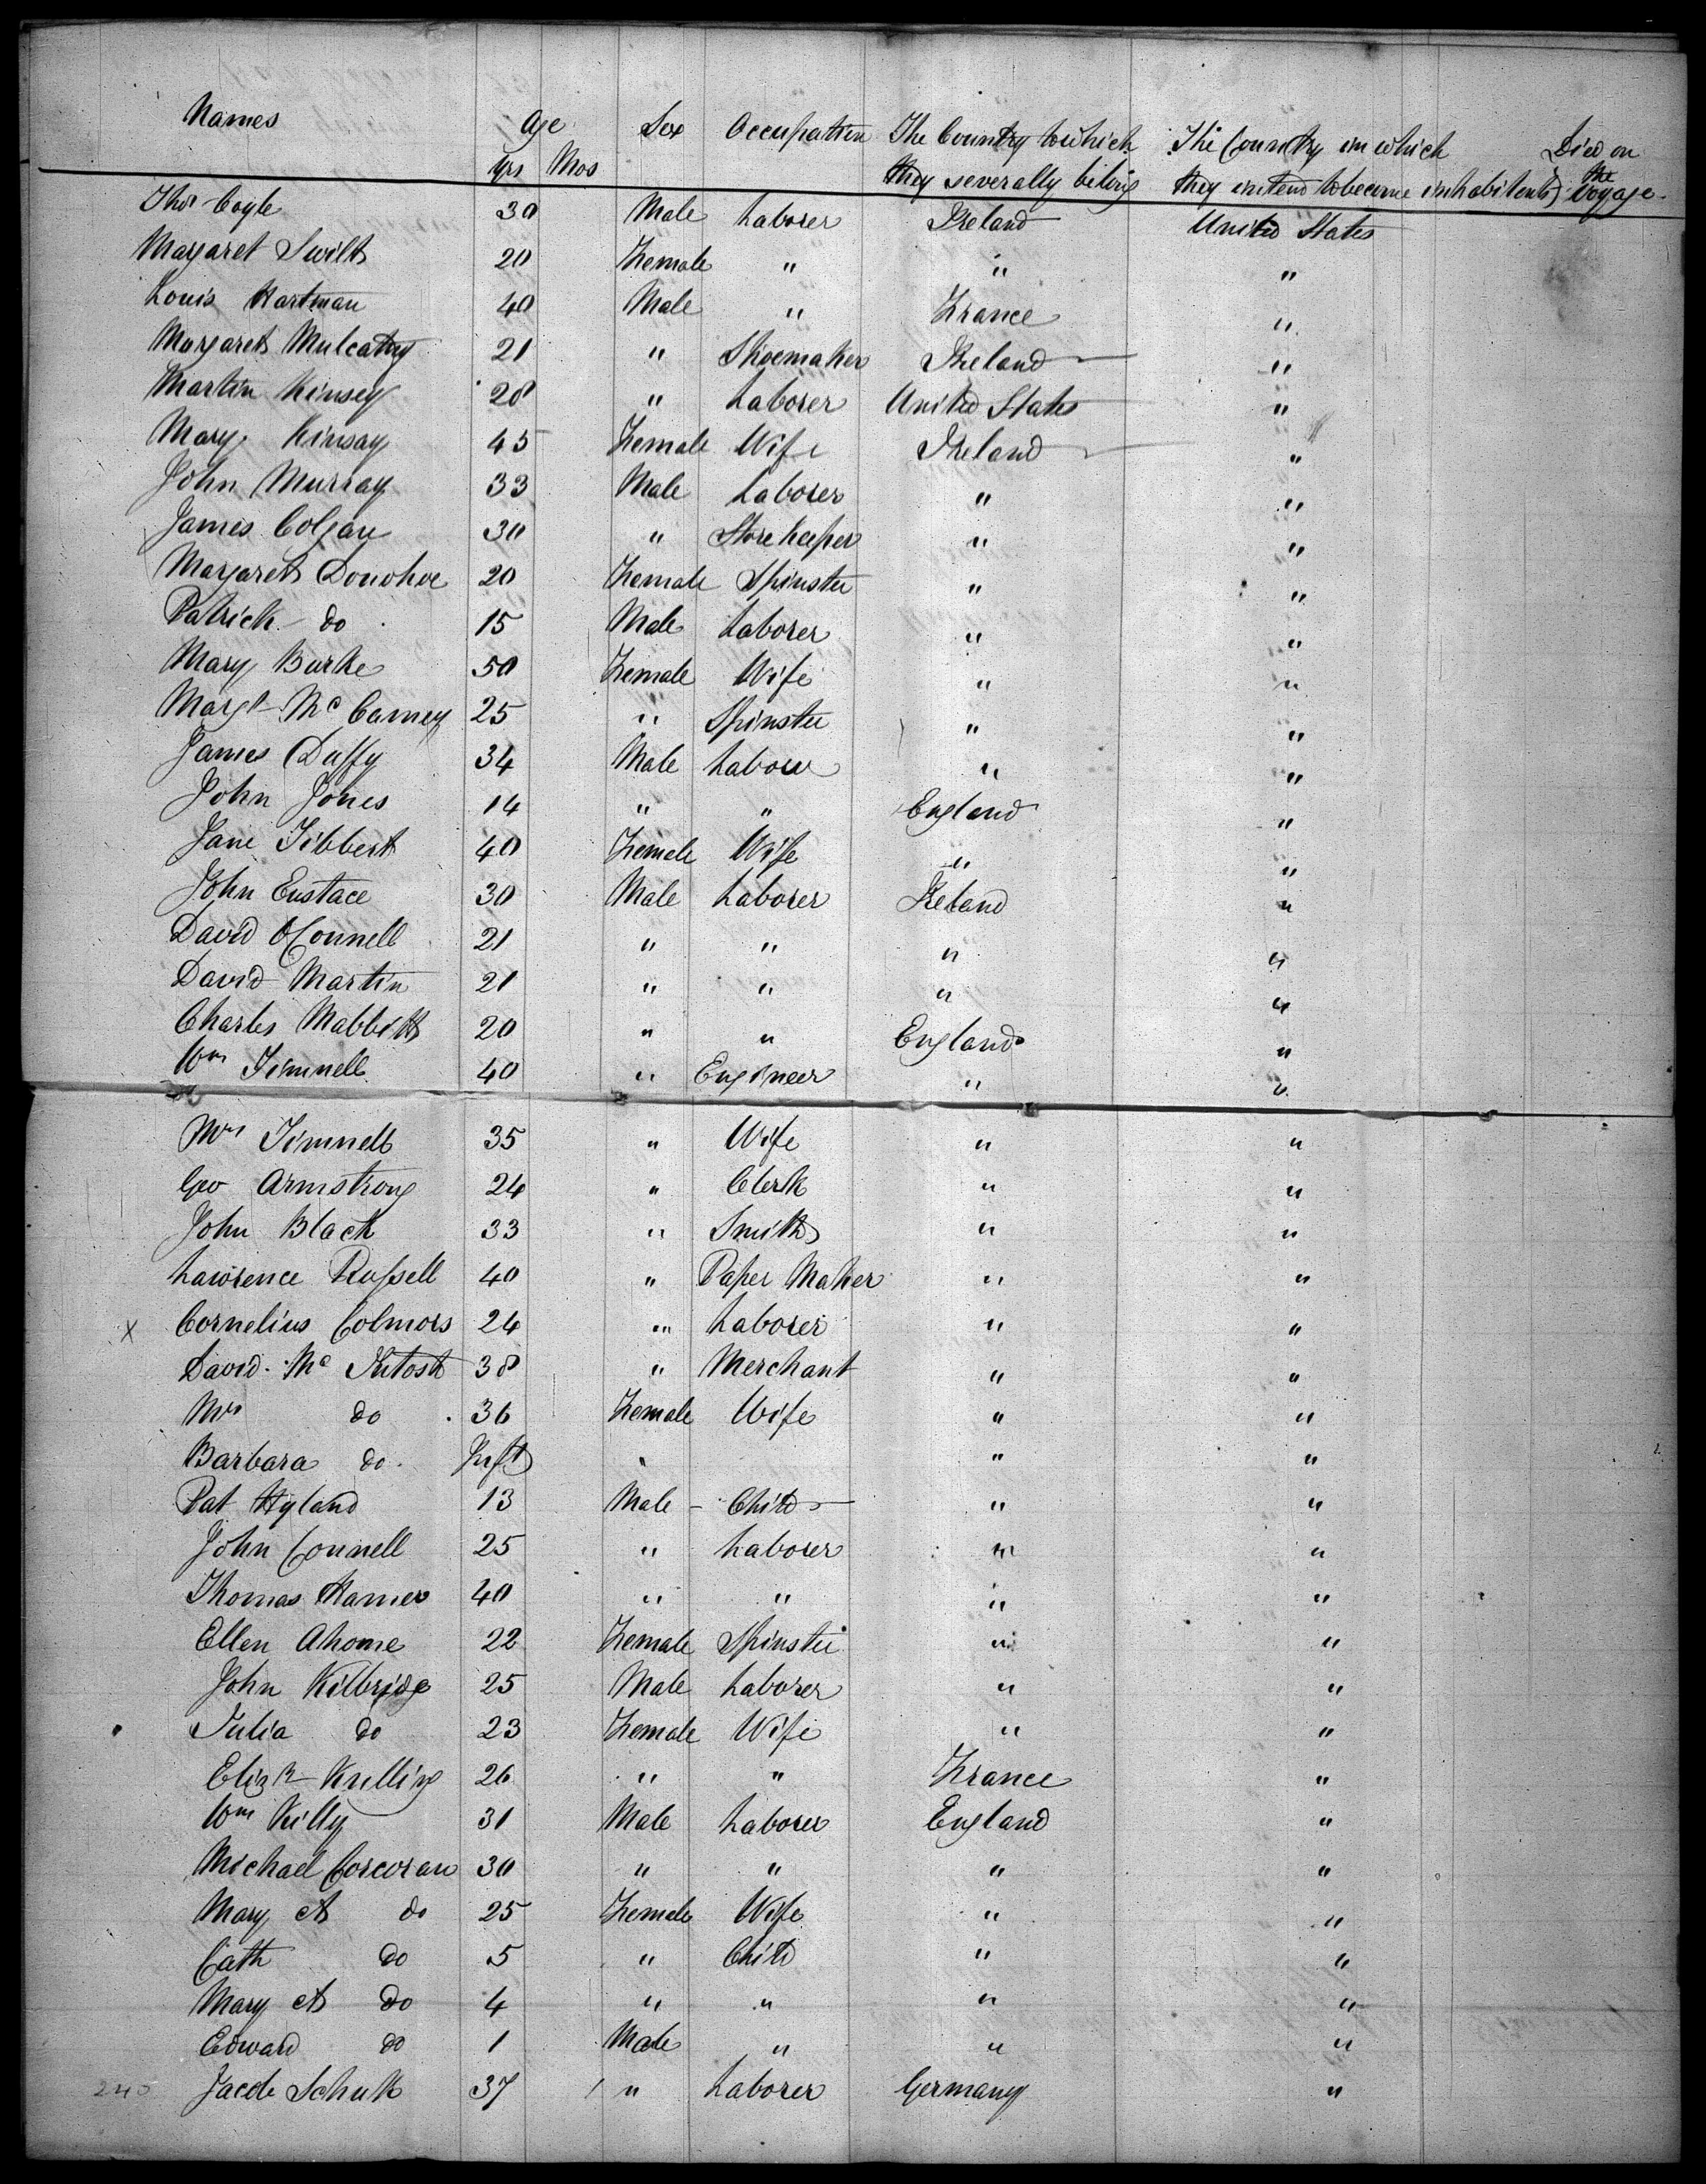 Names Age Sex Occupation The Country to which The Country in which Died on
Yrs Mos they severally belong they intend to become inhabitants the Voyage.
Thos Coyle 30 Male Laborer Ireland United States
Margaret Swift 20 Female " " "
Louis Hartman 40 Male " France "
Margaret Mulcathy 21 " Shoemaker Ireland "
Martin Kinsey 28 " Laborer United States "
Mary Kinsay 45 Female Wife Ireland "
John Murray 33 Male Laborer " "
James Colgan 30 " Storekeeper " "
Margaret Donohoe 20 Female Spinster " "
Patrick do 15 Male Laborer " "
Mary Burke 50 Female Wife " "
Margt Mc Carney 25 " Spinster " "
James Duffy 34 Male Laborer " "
John Jones 14 " " England "
Jane Tibbert 40 Female Wife " "
John Eustace 30 Male Laborer Ireland "
David OConnell 21 " " " "
David Martin 21 " " " "
Charles Mabbitt 20 " " England "
Wm Timnell 40 " Engineer " "
Mrs Timnell 35 " Wife " "
Geo Armstrong 24 " Clerk " "
John Black 33 " Smith " "
Lawrence Russell 40 " Paper Maker " "
X Cornelius Colmors 24 " Laborer " "
David Mc Intosh 38 " Merchant " "
Mrs do 36 Female Wife " "
Barbara do Inft " " "
Pat Hyland 13 Male - Child - " "
John Connell 25 " Laborer " "
Thomas Hamer 40 " " " "
Ellen Ahome 22 Female Spinster " "
John Kilbridge 25 Male Laborer " "
Julia do 23 Female Wife " "
Elizth 26 " " France "
Wm Killy 31 Male Laborer England "
Michael Corcoran 30 " " " "
Mary A do 25 Female Wife " "
Cath do 5 " Child " "
Mary A do 4 " " " "
Edward do 1 Male " " "
240 Jacob 37 " Laborer Germany "